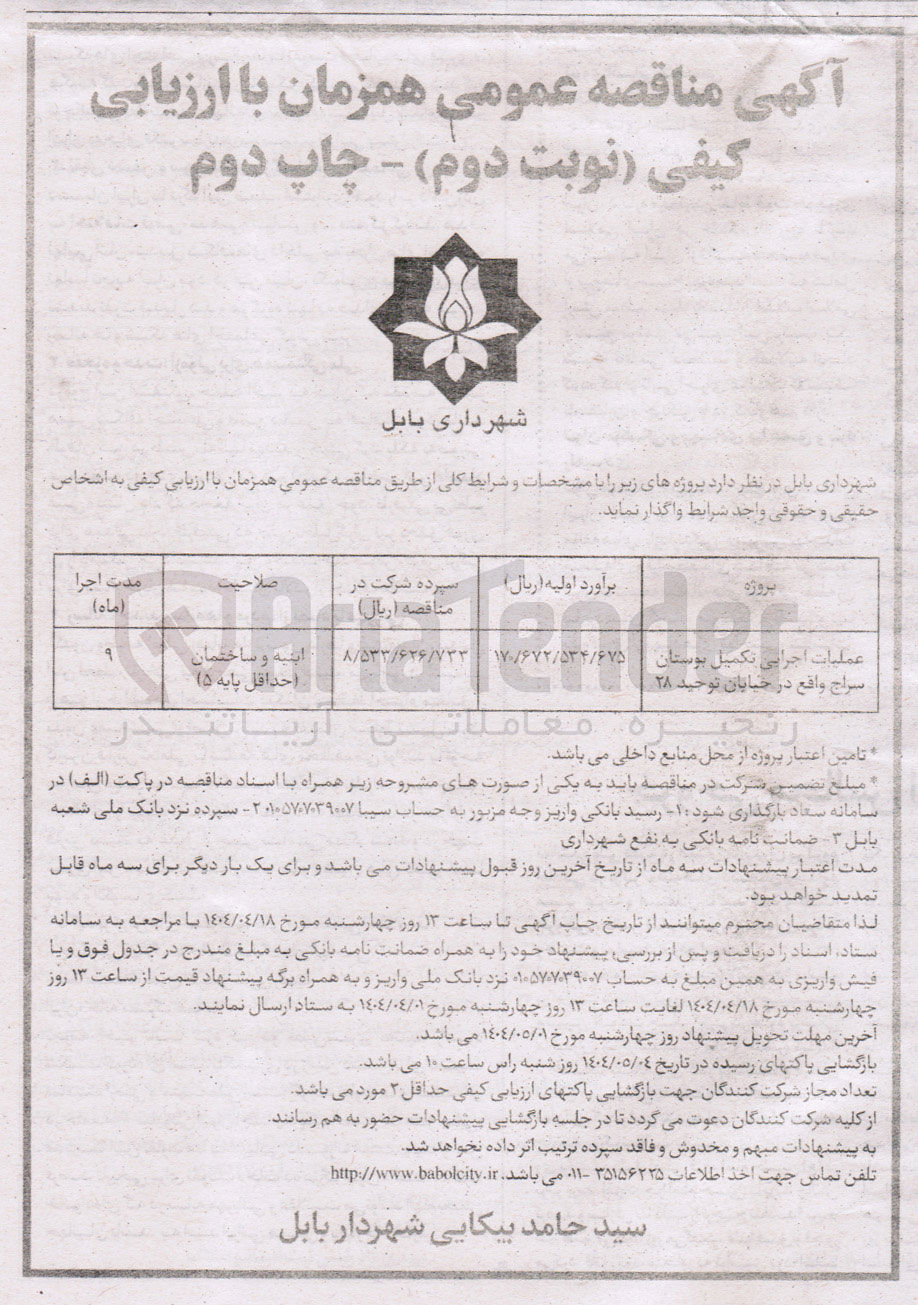 آگهی مناقصه عمومی همزمان با ارزیابی
کیفی (نوبت دوم) - چاپ دوم
شهرداری بابل
شهرداری بابل در نظر دارد پروژه های زیر را با مشخصات و شرایط کلی از طریق مناقصه عمومی همزمان با ارزیابی کیفی به اشخاص
حقیقی و حقوقی واجد شرایط واگذار نماید.
پروژه برآورد اولیه (ریال) سپرده شرکت در صلاحیت مدت اجرا
مناقصه (ریال) (ماه)
عملیات اجرایی تکمیل بوستان ۱۷۰/۶۷۲/۵۳۴/۶۷۵ ۸/۵۳۳/۶۲۶/۷۳۳ ابنیه و ساختمان ۹
سراج واقع در خیابان توحید ۲۸ (حداقل پایه ۵)
AriaTender
زنجیره معاملاتی آریاتندر
* تامین اعتبار پروژه از محل منابع داخلی می باشد.
* مبلغ تضمین شرکت در مناقصه باید به یکی از صورت های مشروحه زیر همراه با اسناد مناقصه در پاکت (الف) در
سامانه ستاد بارگذاری شود: ۱- رسید بانکی واریز وجه مزبور به حساب سیبا ۰۱۰۵۷۰۷۰۳۹۰۰۷ ۲- سپرده نزد بانک ملی شعبه
بابل ۳- ضمانت نامه بانکی به نفع شهرداری
مدت اعتبار پیشنهادات سه ماه از تاریخ آخرین روز قبول پیشنهادات می باشد و برای یک بار دیگر برای سه ماه قابل
تمدید خواهد بود.
لذا متقاضیان محترم میتوانند از تاریخ چاپ آگهی تا ساعت ۱۳ روز چهارشنبه مورخ ۱۴۰۴/۰۴/۱۸ با مراجعه به سامانه
ستاد، اسناد را دریافت و پس از بررسی، پیشنهاد خود را به همراه ضمانت نامه بانکی به مبلغ مندرج در جدول فوق و یا
فیش واریزی به همین مبلغ به حساب ۰۱۰۵۷۰۷۰۳۹۰۰۷ نزد بانک ملی واریز و به همراه برگه پیشنهاد قیمت از ساعت ۱۳ روز
چهارشنبه مورخ ۱۴۰۴/۰۴/۱۸ لغایت ساعت ۱۳ روز چهارشنبه مورخ ۱۴۰۴/۰۴/۰۱ به ستاد ارسال نمایند.
آخرین مهلت تحویل پیشنهاد روز چهارشنبه مورخ ۱۴۰۴/۰۵/۰۱ می باشد.
بازگشایی پاکتهای رسیده در تاریخ ۱۴۰۴/۰۵/۰۴ روز شنبه راس ساعت ۱۰ می باشد.
تعداد مجاز شرکت کنندگان جهت بازگشایی پاکتهای ارزیابی کیفی حداقل ۲ مورد می باشد.
از کلیه شرکت کنندگان دعوت می گردد تا در جلسه بازگشایی پیشنهادات حضور به هم رسانند.
به پیشنهادات مبهم و مخدوش و فاقد سپرده ترتیب اثر داده نخواهد شد.
تلفن تماس جهت اخذ اطلاعات ۳۵۱۵۶۲۲۵ -۰۱۱ می باشد. http://www.babolcity.ir
سید حامد بیکایی شهردار بابل